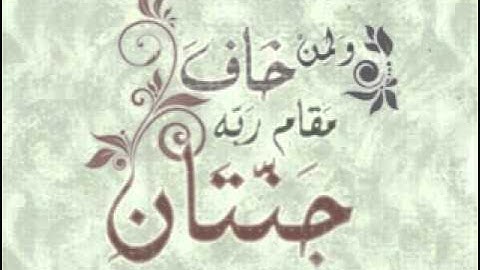 ولمن خَافَ
مَقَام رَبّه
جَنّتَان